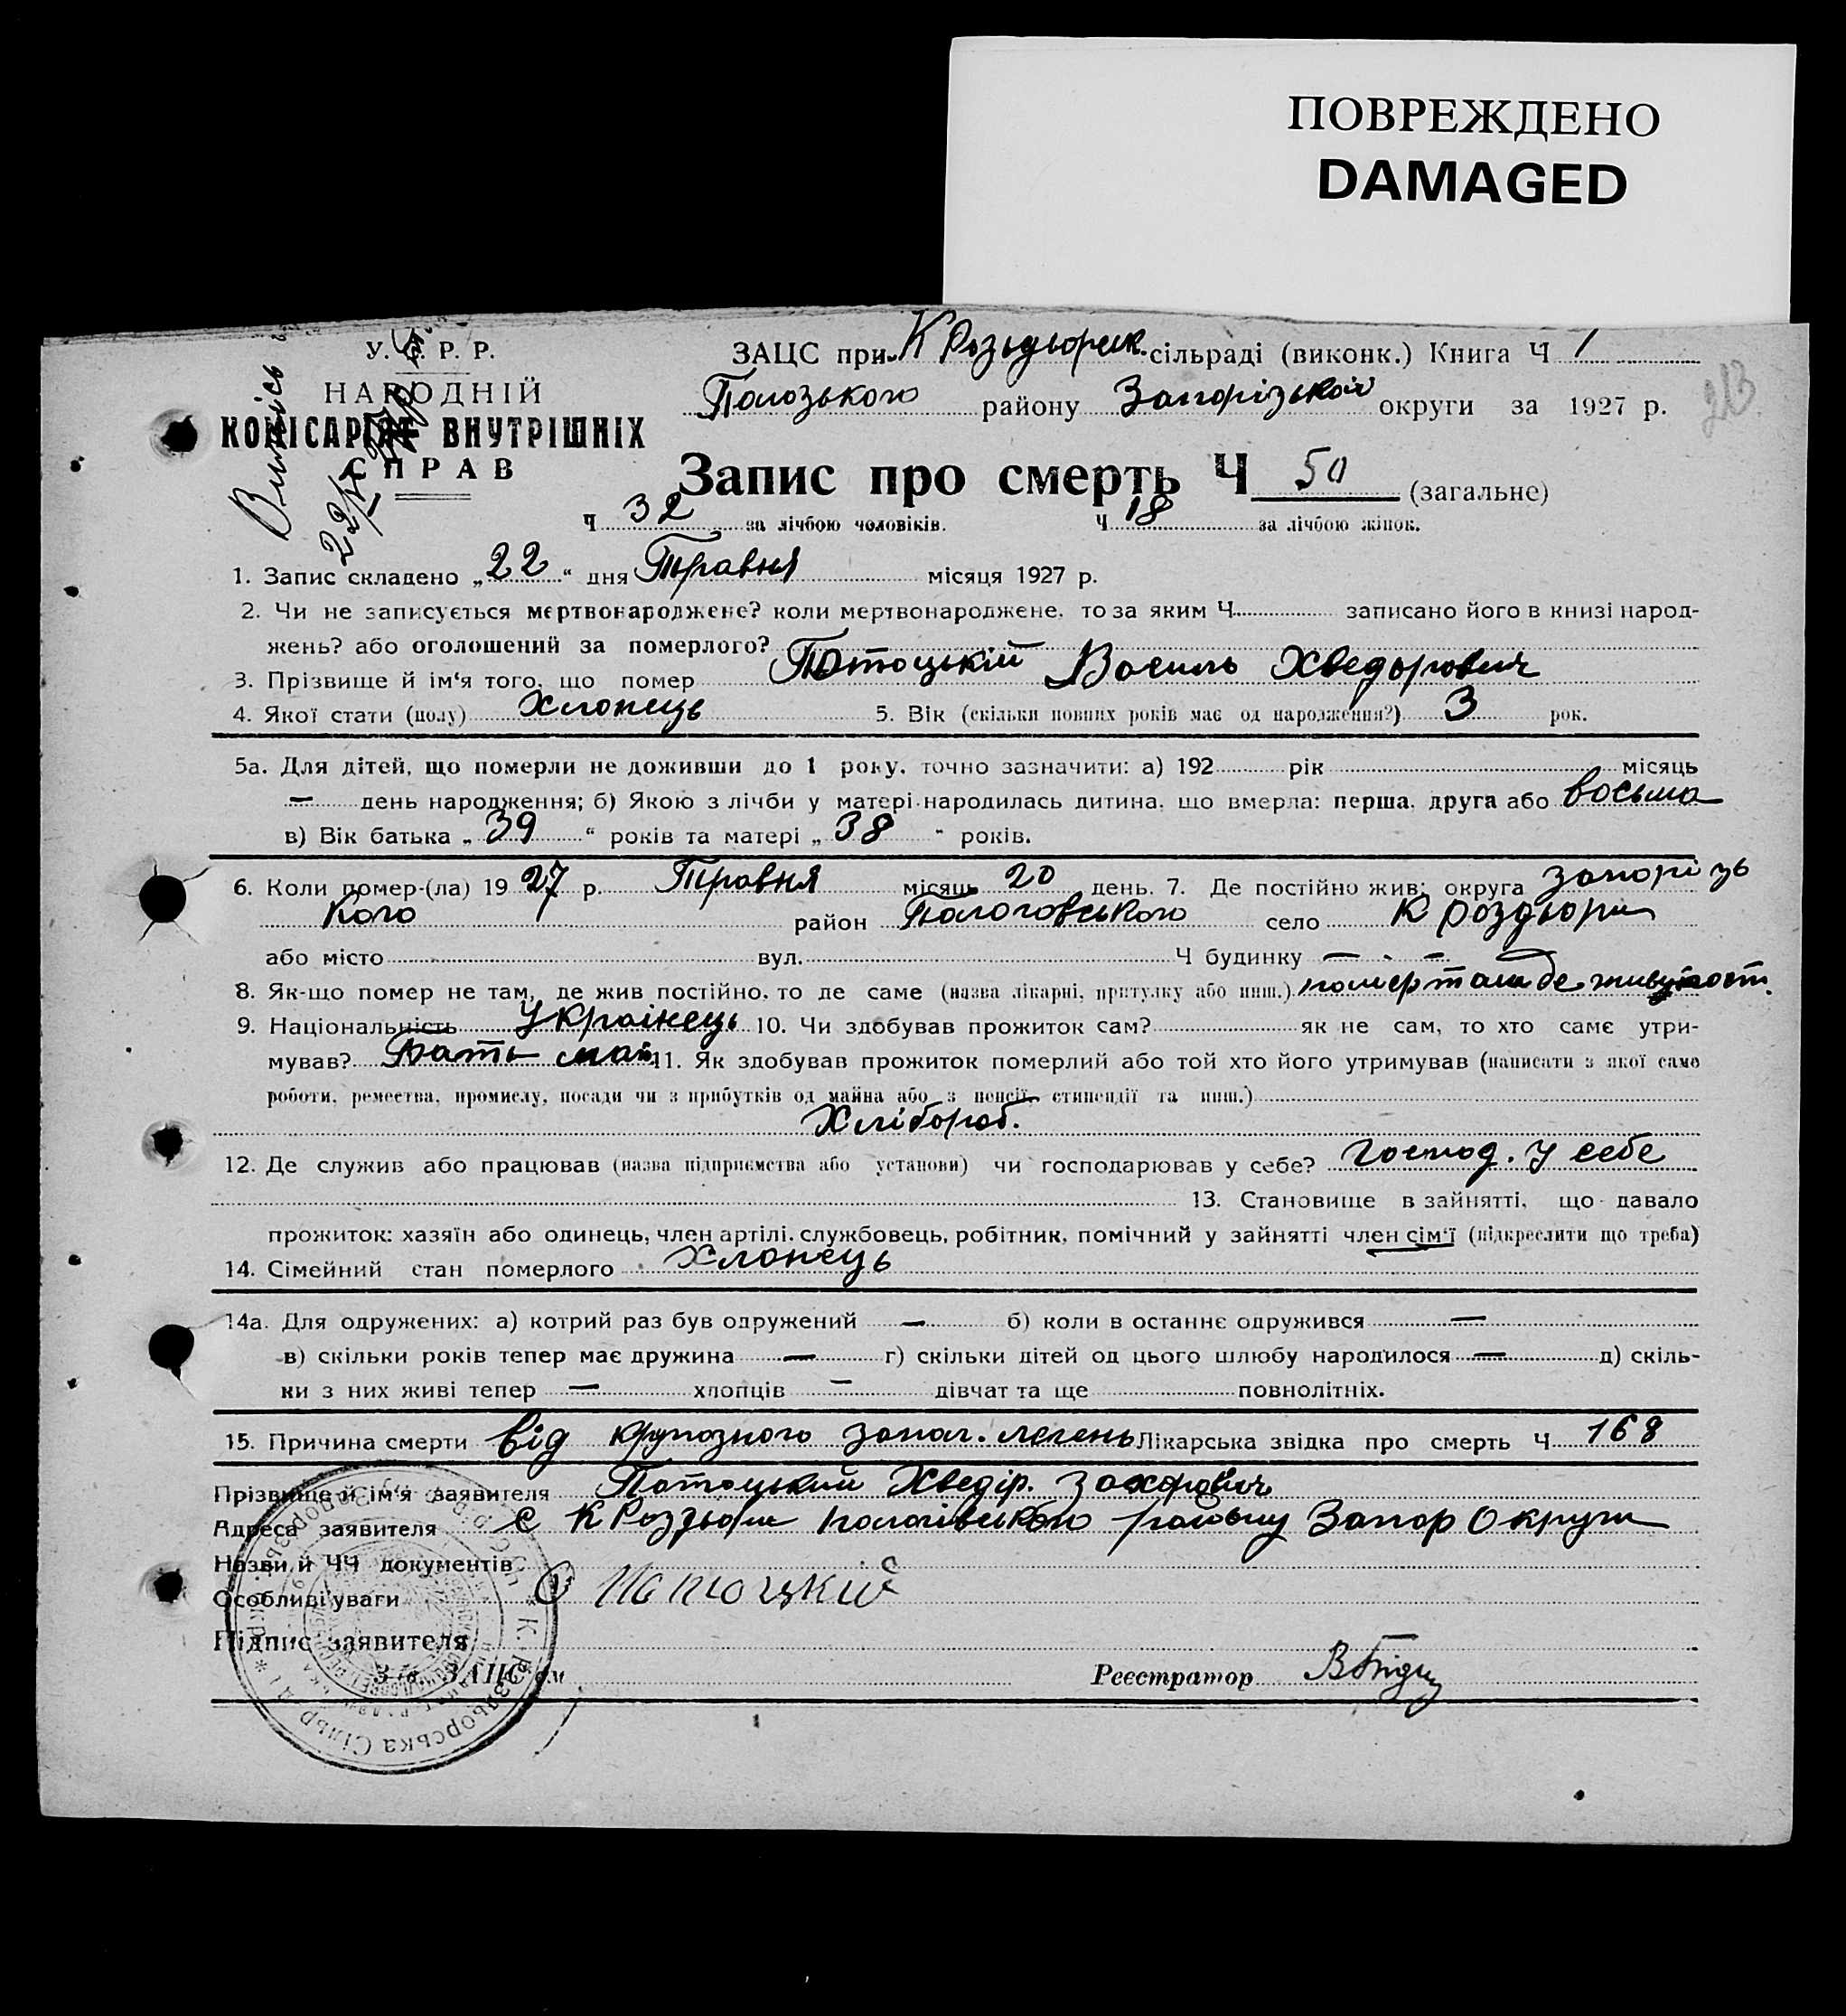 ПОВРЕЖДЕНО
DAMAGED
У. С. Р. Р.
НАРОДНІЙ
КОМІСАРІЯТ ВНУТРІШНІХ
СПРАВ
Випись
ЗАЦС при К Роздьорск. сільраді (виконк.) Книга Ч 1
Пологзького району Запорізькой округи за 1927 р.
213
Запис про смерть Ч 50 (загальне)
Ч 32 за лічбою чоловіків. Ч 18 за лічбою жінок.
1. Запис складено „22“ дня Травня місяця 1927 р.
2. Чи не записується мертвонароджене? коли мертвонароджене, то за яким Ч записано його в книзі народ-
жень? або оголошений за померлого?
3. Прізвище й ім'я того, що помер Потоцькій Василь Хведорович
4. Якої стати (полу) Хлопець 5. Вік (скільки повних років має од народження?) 3 рок.
5а. Для дітей, що померли не доживши до 1 року, точно зазначити: а) 192 рік місяць
— день народження; б) Якою з лічби у матері народилась дитина, що вмерла: перша, друга або восьма
в) Вік батька „39“ років та матері „38“ років.
6. Коли помер-(ла) 1927 р. Травня місяць 20 день. 7. Де постійно жив: округа Запорізь
кого район Пологовського село К Роздьори
або місто вул. Ч будинку —
8. Як-що помер не там, де жив постійно, то де саме (назва лікарні, притулку або инш.) помер там де живу пост.
9. Національність Українець 10. Чи здобував прожиток сам? як не сам, то хто саме утри-
мував? Бать 11. Як здобував прожиток померлий або той хто його утримував (написати з якої само
роботи, ремества, промислу, посади чи з прибутків од майна або з пенсії, стипендії та инш.)
Хлібороб.
12. Де служив або працював (назва підприємства або установи) чи господарював у себе? Господ. у себе
13. Становище в зайнятті, що давало
прожиток: хазяїн або одинець, член артілі, службовець, робітник, помічний у зайнятті член сім'ї (підкреслити що треба)
14. Сімейний стан померлого Хлопець
14а. Для одружених: а) котрий раз був одружений — б) коли в останнє одружився —
в) скільки років тепер має дружина — г) скільки дітей од цього шлюбу народилося — д) скіль-
ки з них живі тепер — хлопців — дівчат та ще повнолітніх.
15. Причина смерти від крупозного запал. легень Лікарська звідка про смерть Ч 168
Прізвище й ім'я заявителя Потоцький Хведір. Захарович
Адреса заявителя С К Роздьори Пологівського району Запор Округи
Назви й ЧЧ документів
Особливі уваги
Потоцкий
Підпис заявителя
Зав. ЗАЦС'ом Реєстратор